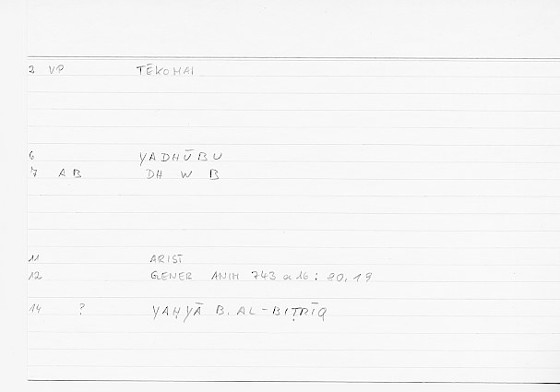 2 VP TĒKOMAI
6 YADHŪBU
7 AB DH W B
11 ARIST
12 GENER ANIM 743 a 16 : 80,19
14 ? YAḤYĀ B. AL-BIṬRĪQ